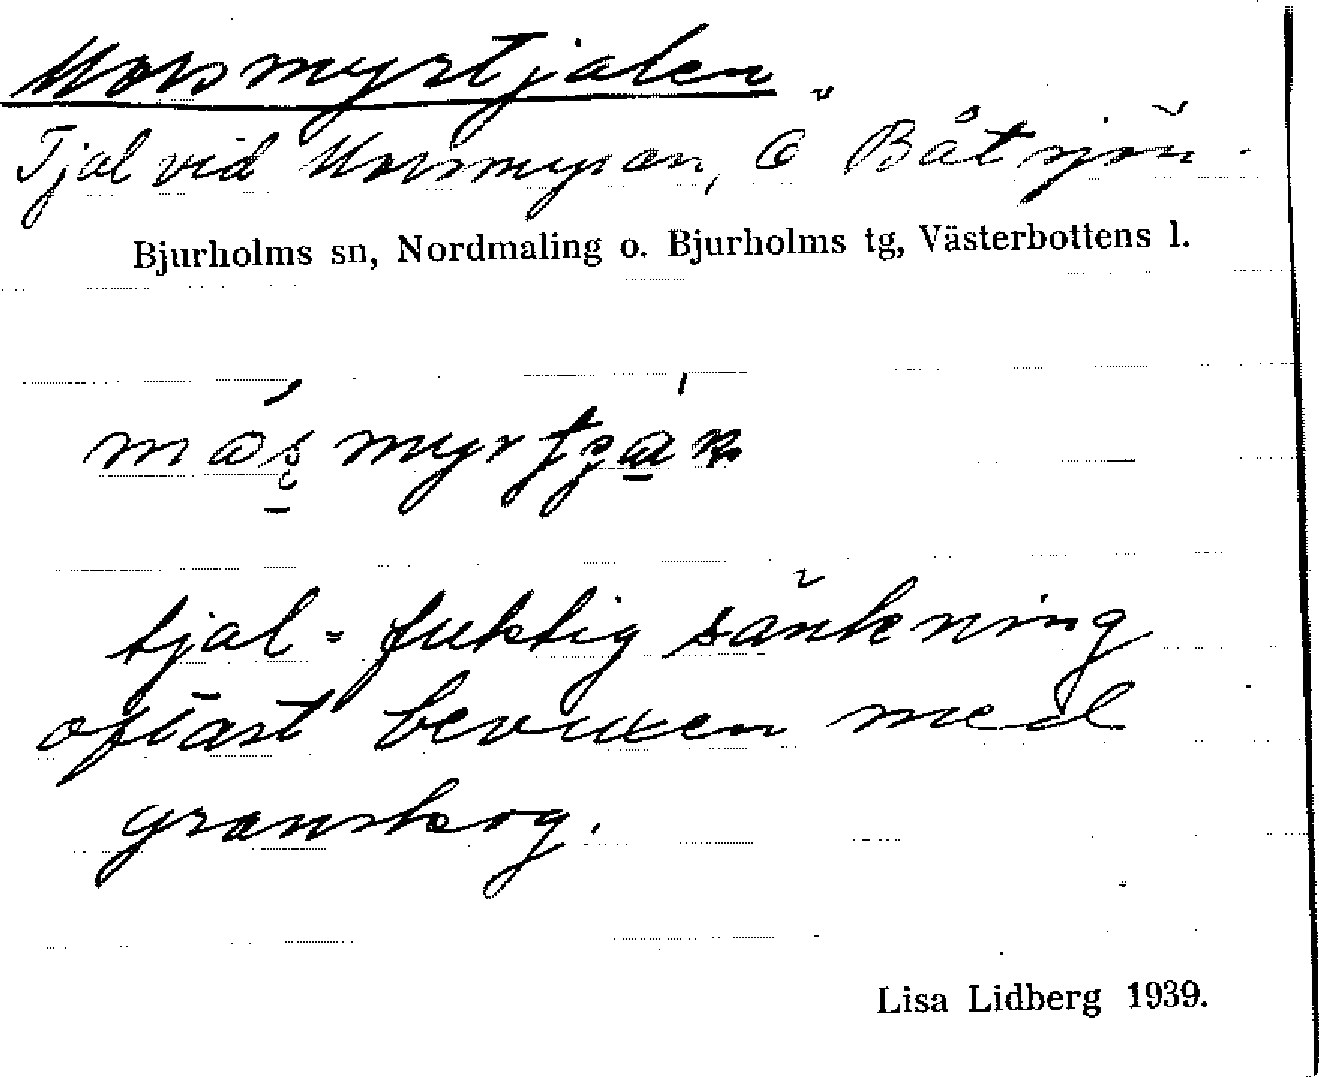 Morsmyrtjalen
Tjal vid Morsmyran, Ö Båtsjön.
Bjurholms sn, Nordmaling o. Bjurholms tg, Västerbottens l.
tjal = fuktig sänkning
oftast bevuxen med
granskog.
Lisa Lidberg 1939.